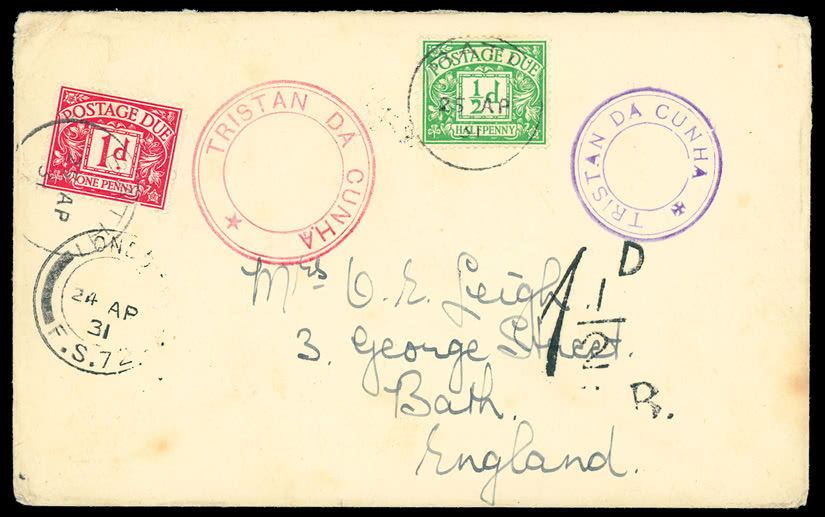 POSTAGE DUE
1d
ONE PENNY
TRISTAN DA CUNHA
POSTAGE DUE
½d
HALFPENNY
25 AP
31
TRISTAN DA CUNHA
25 AP
31
LONDO
24 AP
31
F.S.72
1½D
R.
Mrs O. E. Leigh
3. George Street.
Bath.
England.